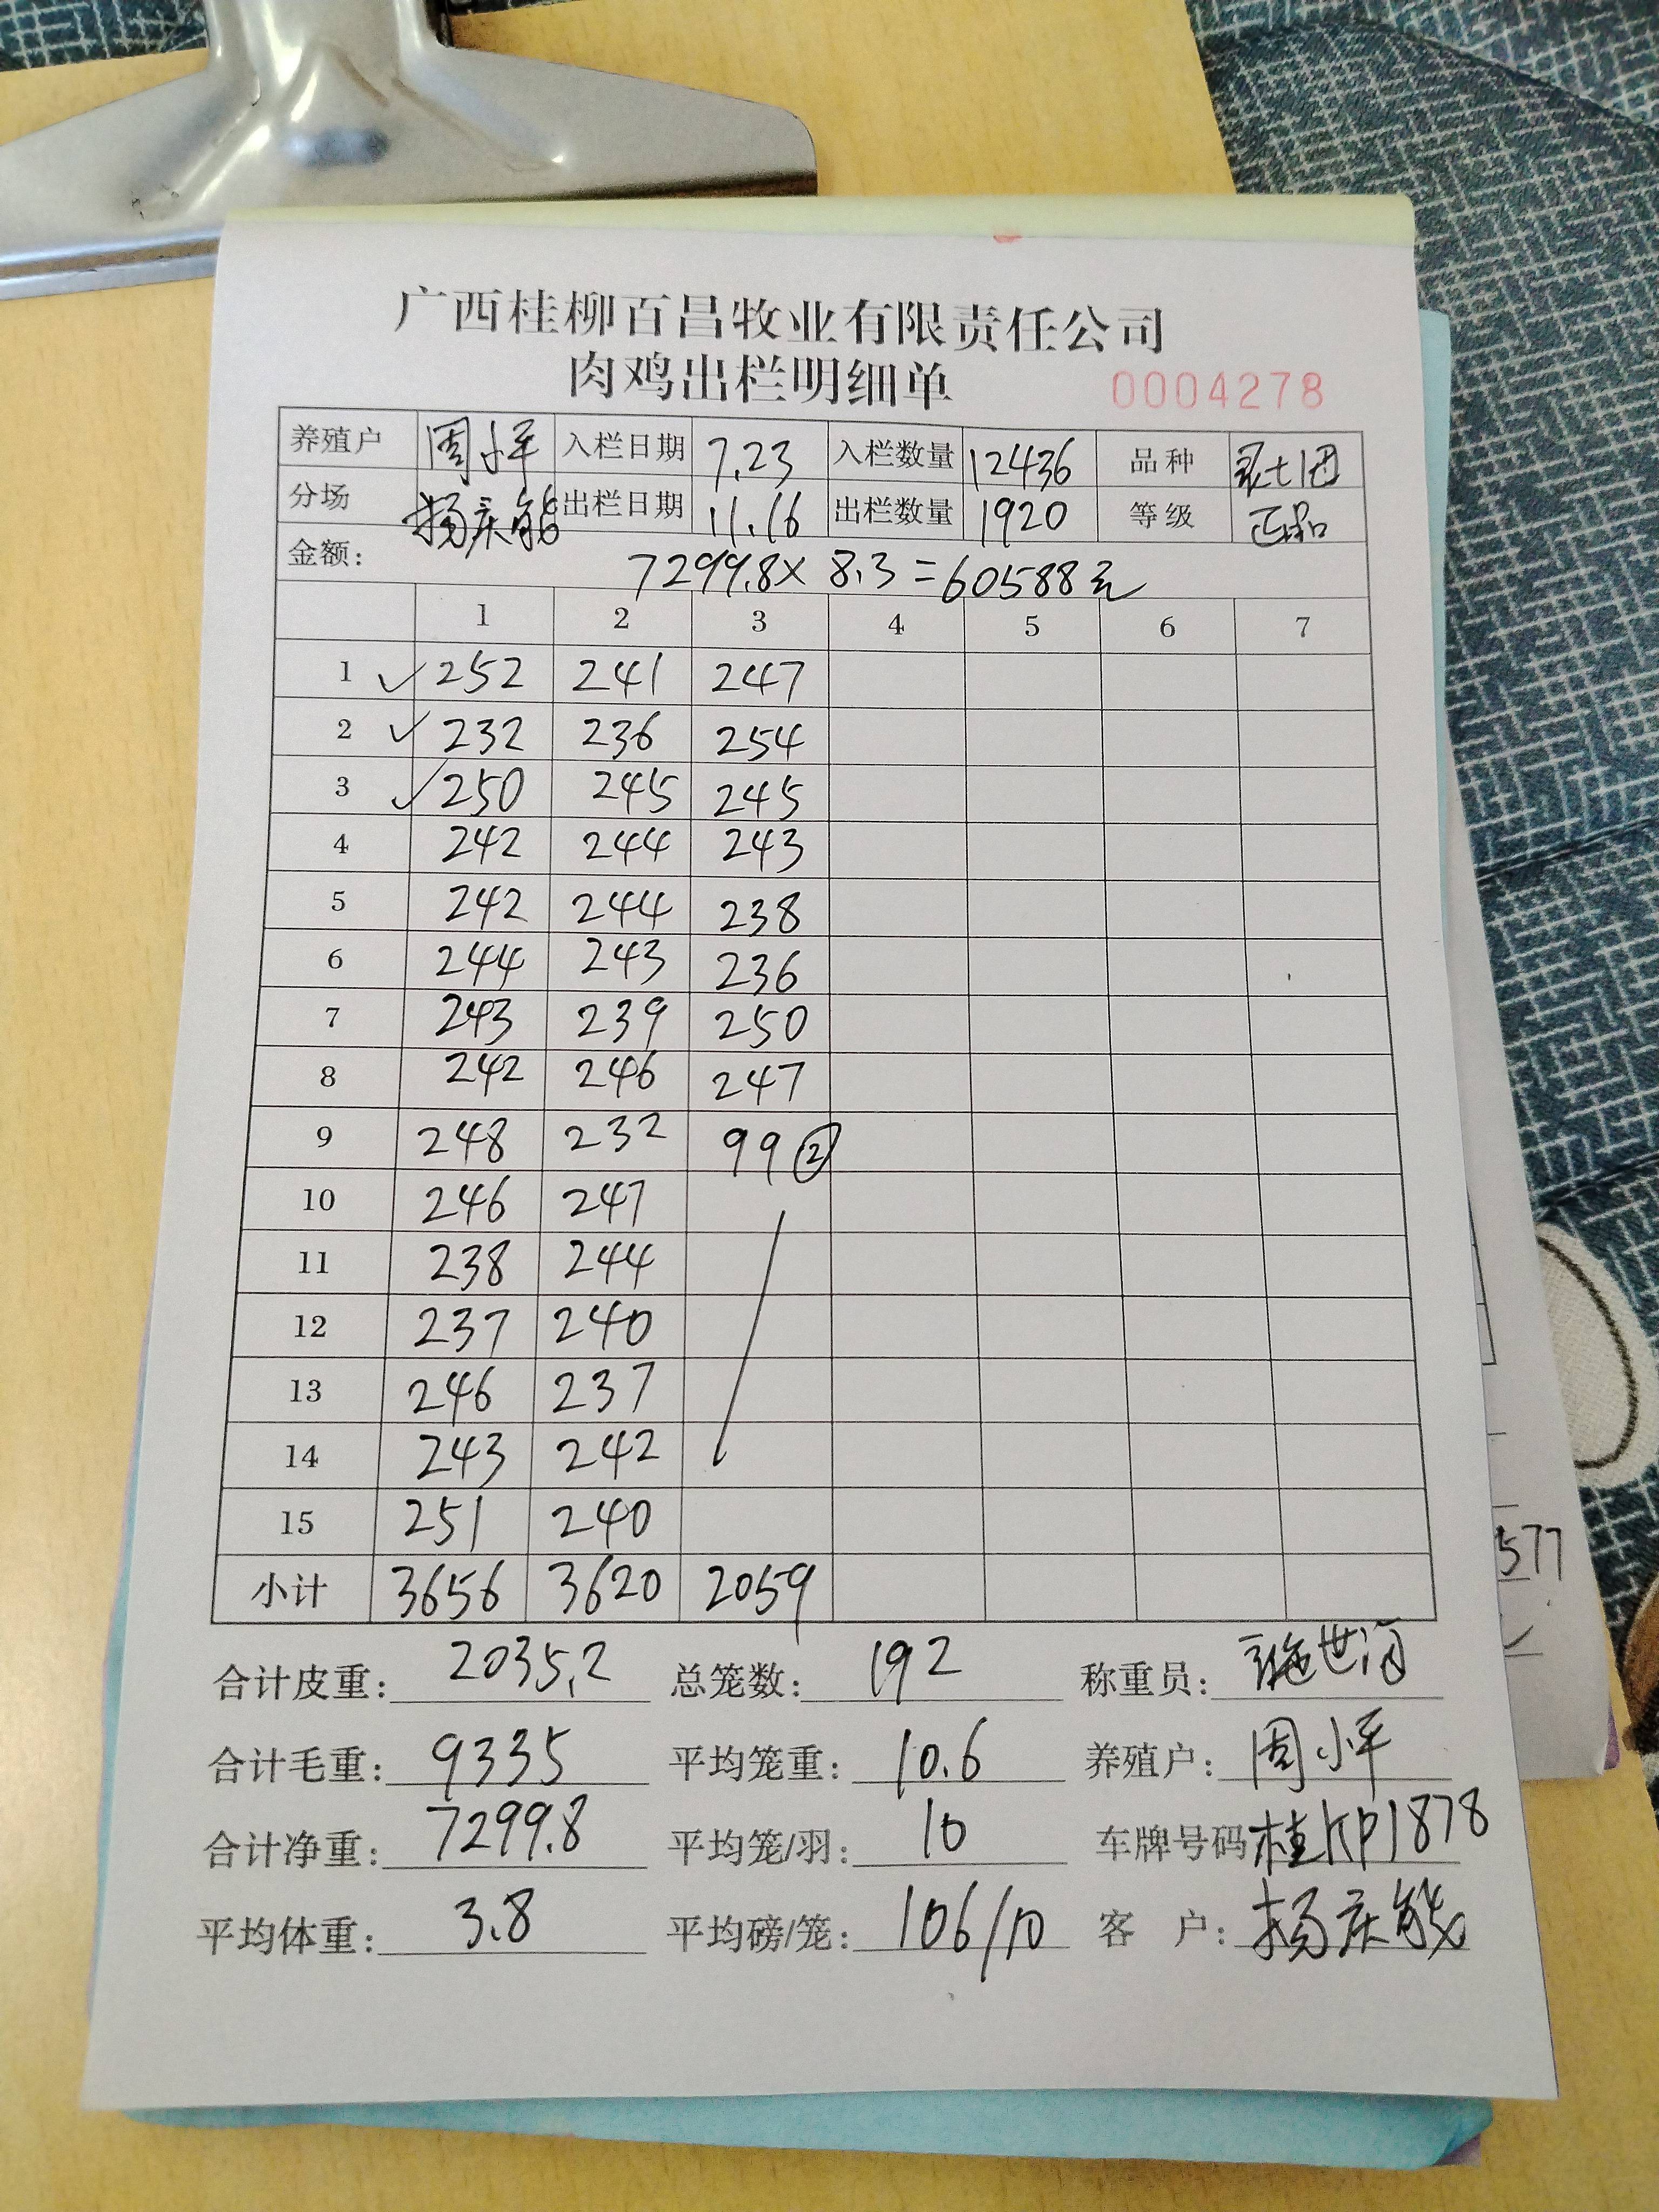 广西桂柳百昌牧业有限责任公司
肉鸡出栏明细单 0004278
养殖户 周小平 入栏日期 7.23 入栏数量 12436 品种
分场 杨庆能 出栏日期 11.16 出栏数量 1920 等级 正品
金额: 7299.8×8.3=60588元
1 2 3 4 5 6 7
1 ✓252 241 247
2 ✓232 236 254
3 ✓250 245 245
4 242 244 243
5 242 244 238
6 244 243 236
7 243 239 250
8 242 246 247
9 248 232 99②
10 246 247
11 238 244
12 237 240
13 246 237
14 243 242
15 251 240
小计 3656 3620 2059
合计皮重: 2035.2 总笼数: 192 称重员: 施世海
合计毛重: 9335 平均笼重: 10.6 养殖户: 周小平
合计净重: 7299.8 平均笼/羽: 10 车牌号码 桂KP1878
平均体重: 3.8 平均磅/笼: 106/10 客户: 杨庆能
577